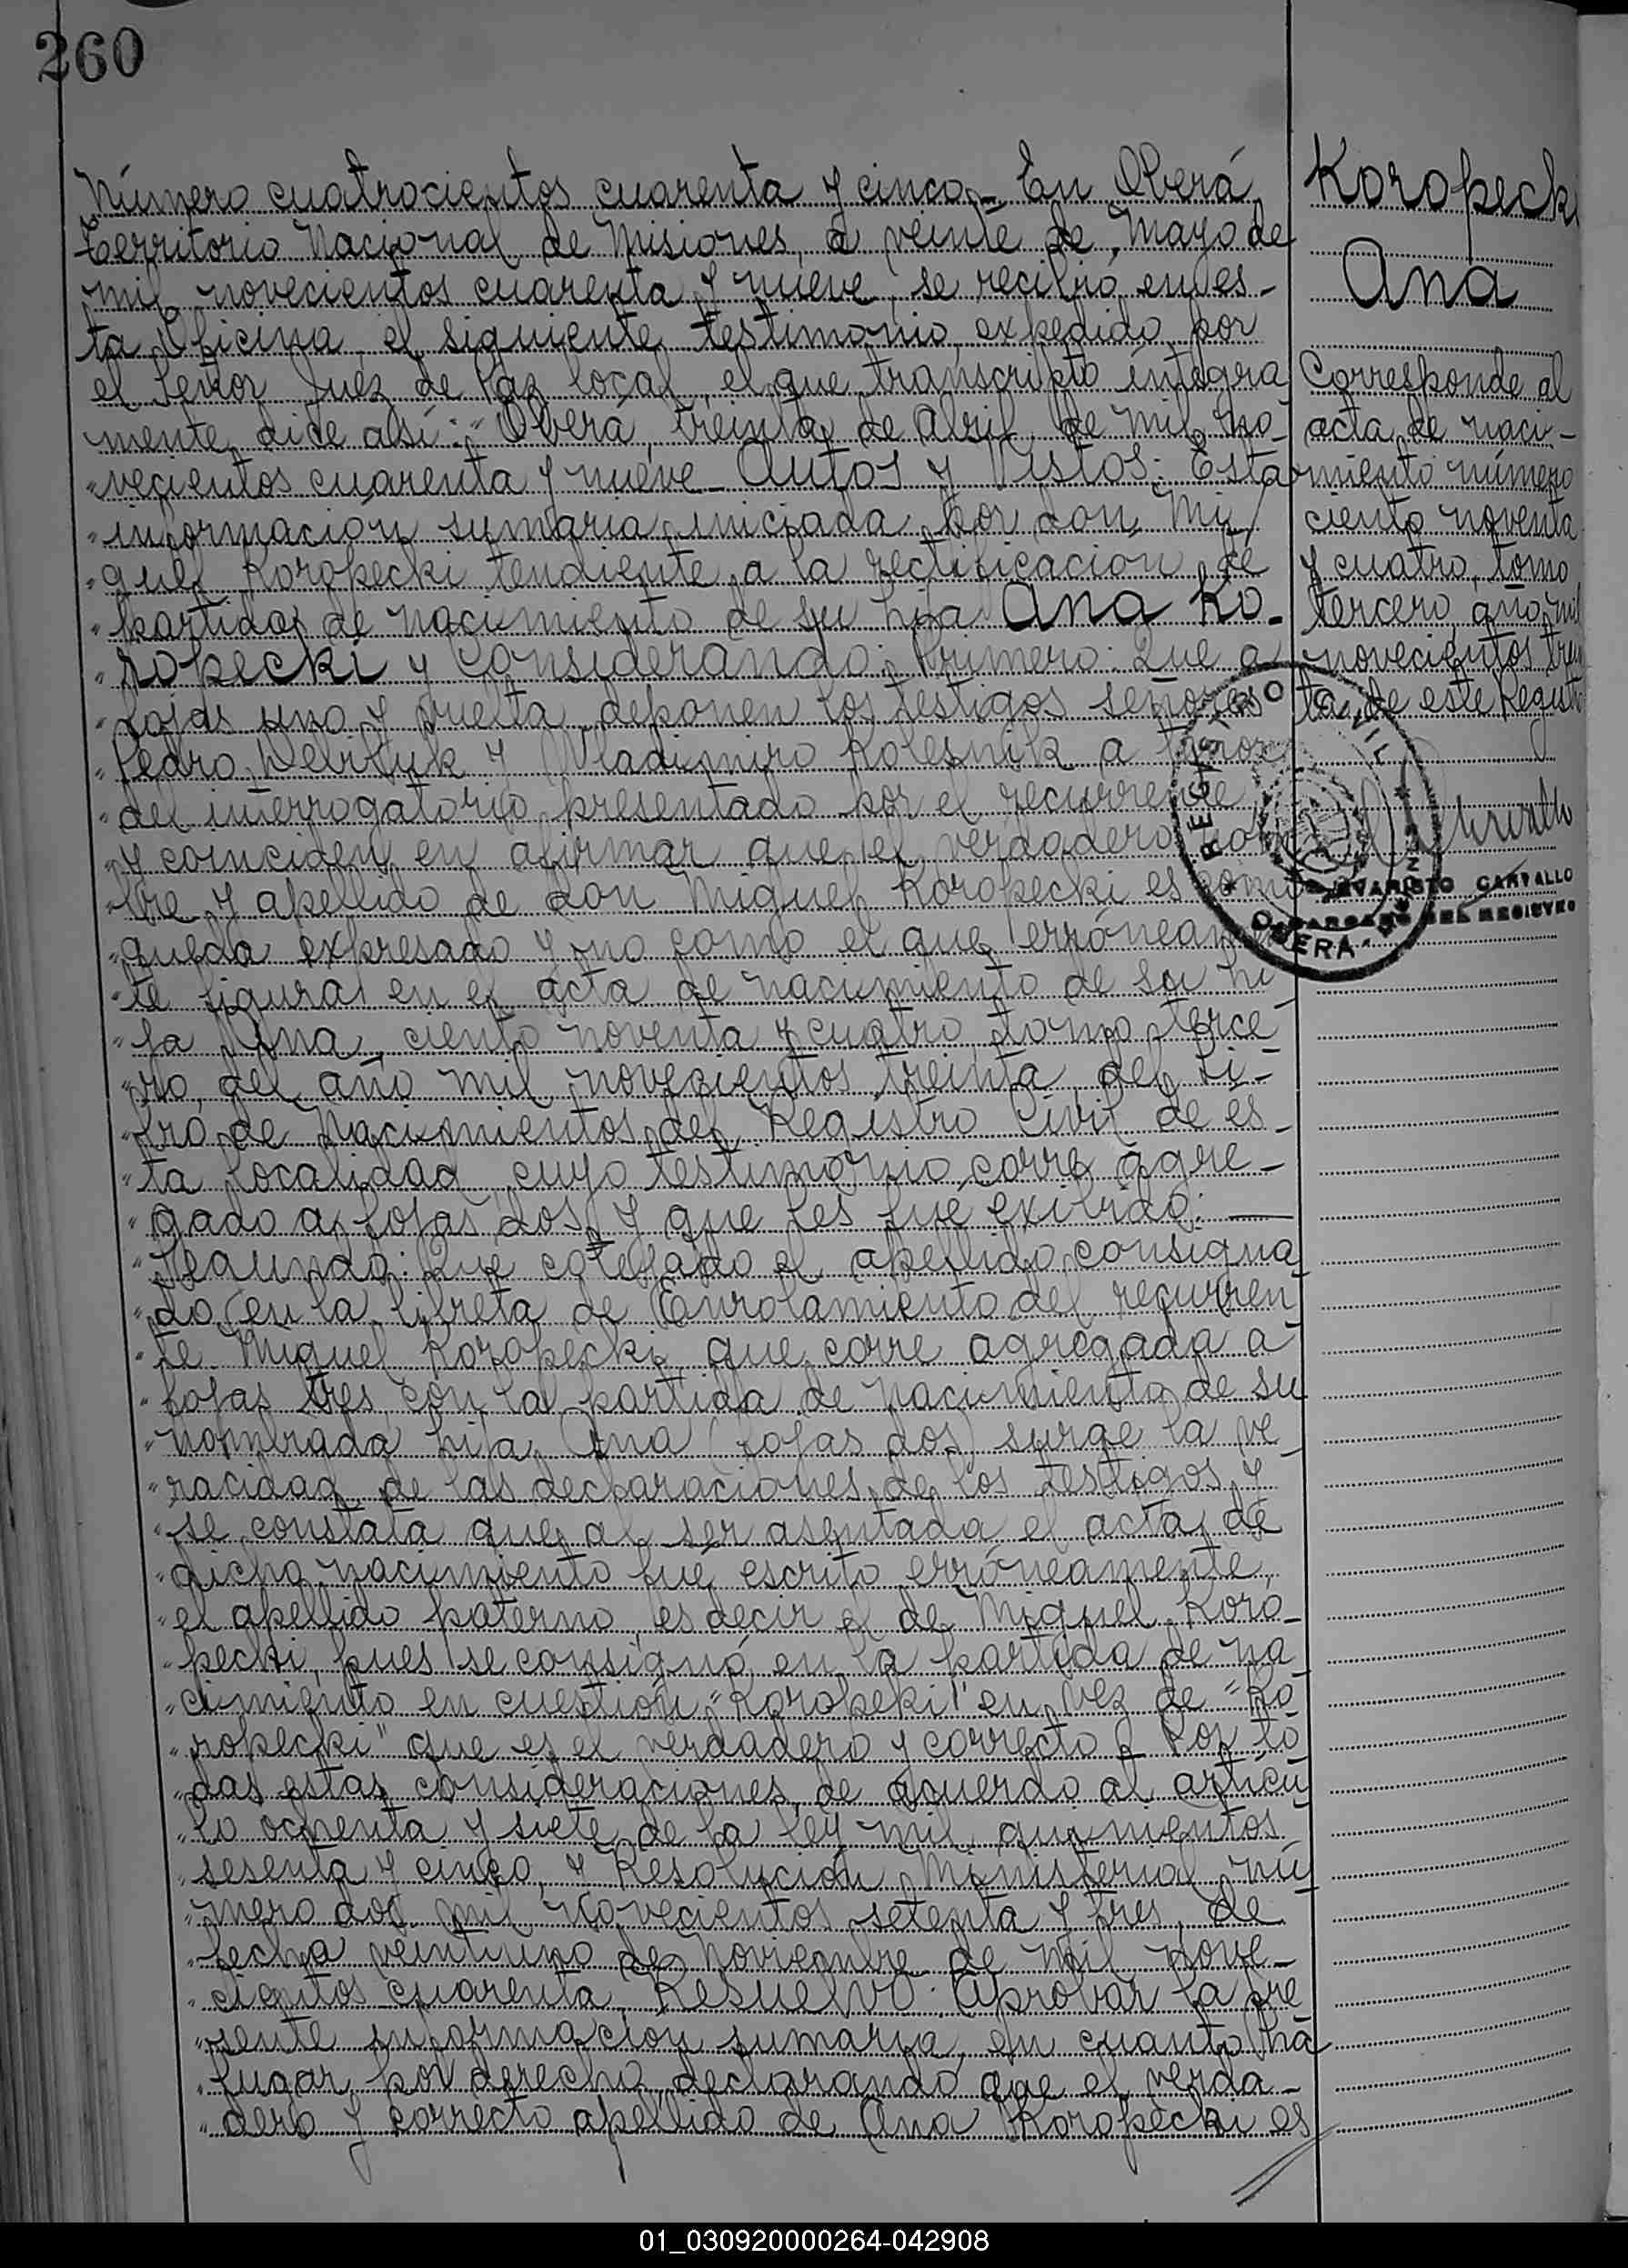 260
Número cuatrocientos cuarenta y cinco_ En Oberá
territorio Nacional de Misiones, a veinte de Mayo de
mil novecientos cuarenta y nueve, se recibió en es-
ta Oficina el siguiente testimonio, expedido por
el Señor Juez de Paz local, el que transcripto íntegra
mente dice así: "Oberá, treinta de Abril de mil no-
"vecientos cuarenta y nueve_ Autos y Vistos: Esta
"información sumaria iniciada por don Mi
"guel Koropecki tendiente a la rectificación de
"partida de nacimiento de su hija Ana Ko-
"ropecki y Considerando: Primero: Que a
"fojas uno y vuelta deponen los testigos señores
"Pedro y Vladimiro Kolesnik a tenor
"del interrogatorio presentado por el recurrente
"y coinciden en afirmar que el verdadero nom
"bre y apellido de don Miguel Koropecki es como
"queda expresado y no como el que erróneamen
"te figura en el acta de nacimiento de su hi
"ja Ana, ciento noventa y cuatro, tomo terce
"ro, del año mil novecientos treinta, del Li-
"bro de Nacimientos del Registro Civil de es-
"ta localidad cuyo testimonio corre agre-
"gado a fojas dos y que les fué exibido:
"Segundo: Que cotejado el apellido consigna
"do en la libreta de Enrolamiento del recurren
"te Miguel Koropecki, que corre agregada a
"fojas tres, con la partida de nacimiento de su
"nombrada hija Ana (fojas dos) surge la ve
"racidad de las declaraciones de los testigos y
"se constata que al ser asentada el acta de
"dicho nacimiento fué escrito erróneamente
"el apellido paterno, es decir el de Miguel Koro-
"pecki, pues se consignó en la partida de na
"cimiento en cuestión "Koropeki" en vez de "Ko
"ropecki" que es el verdadero y correcto_ Por to
"das estas consideraciones, de acuerdo al artícu
"lo ochenta y siete de la ley mil quinientos
"sesenta y cinco, y Resolución Ministerial nú
"mero dos mil novecientos setenta y tres, de
"fecha veintiuno de Noviembre de mil nove-
"cientos cuarenta, Resuelvo: Aprobar la pre
"sente información sumaria, en cuanto ha
"lugar por derecho, declarando que el verda-
"dero y correcto apellido de Ana Koropecki es
Koropecki
Ana
Corresponde al
acta de naci-
miento número
ciento noventa
y cuatro, tomo
tercero, año mil
novecientos trein
ta, de este Registro
REGISTRO CIVIL
OBERA
EVARISTO CARVALLO
ENCARGADO DEL REGISTRO
01_030920000264-042908